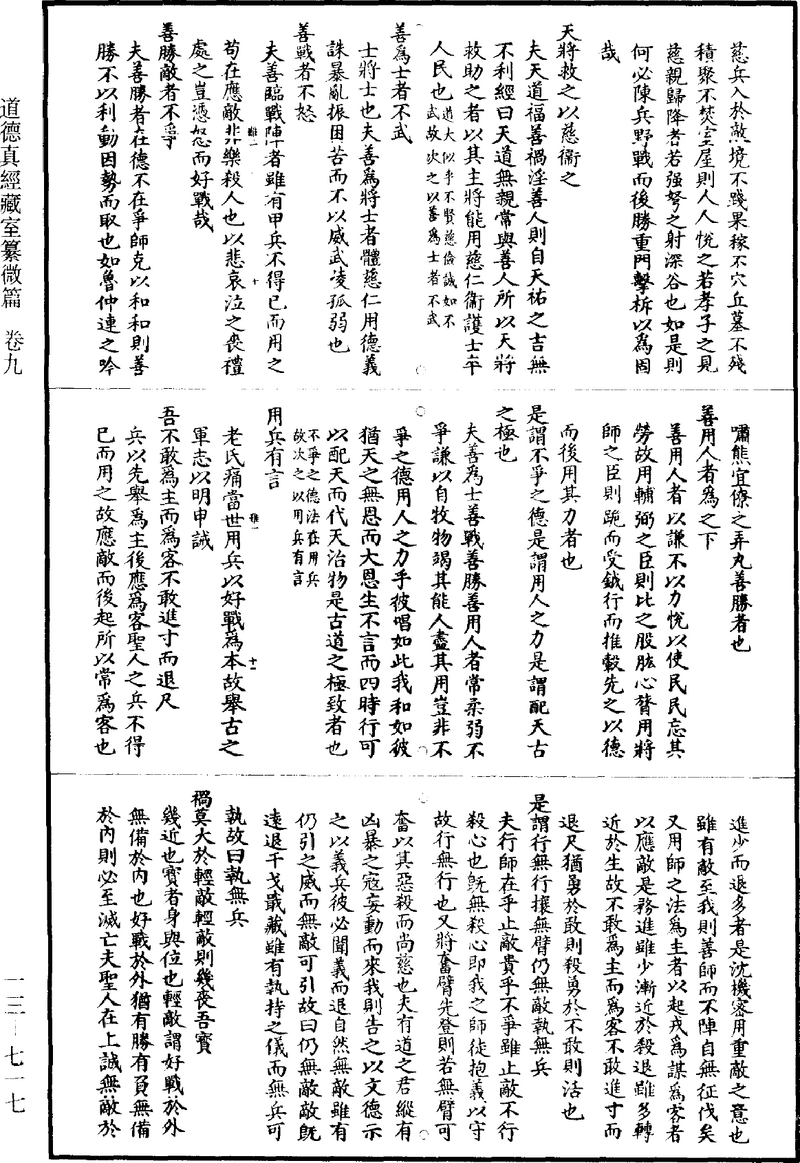 慈兵入於敵境不踐果稼不穴丘墓不殘
積聚不焚室屋則人人悅之若孝子之見
慈親歸降者若强弩之射深谷也如是則
何必陳兵野戰而後勝重門擊柝以為固
哉
天將救之以慈衞之
夫天道福善禍淫善人則自天祐之吉無
不利經曰天道無親常與善人所以天將
救助之者以其主將能用慈仁衞護士卒
人民也道大似乎不賢慈儉誠如不
武故次之以善為士者不武
善為士者不武
士將士也夫善為將士者體慈仁用德義
誅暴亂振困苦而不以威武凌孤弱也
善戰者不怒
夫善臨戰陣者雖有甲兵不得已而用之
苟在應敵非樂殺人也以悲哀泣之喪禮
處之豈憑怒而好戰哉
善勝敵者不爭
夫善勝者在德不在爭師克以和和則善
勝不以利動因勢而取也如魯仲連之吟
嘯熊宜僚之弄丸善勝者也
善用人者為之下
善用人者以謙不以力悅以使民民忘其
勞故用輔弼之臣則比之股肱心膂用將
師之臣則跪而受鉞行而推轂先之以德
而後用其力者也
是謂不爭之德是謂用人之力是謂配天古
之極也
夫善為士善戰善勝善用人者常柔弱不
爭謙以自牧物竭其能人盡其用豈非不
爭之德用人之力乎彼唱如此我和如彼
猶天之無恩而大恩生不言而四時行可
以配天而代天治物是古道之極致者也
不爭之德法在用兵
故次之以用兵有言
用兵有言
老氏痛當世用兵以好戰為本故舉古之
軍志以明申誡
吾不敢為主而為客不敢進寸而退尺
兵以先舉為主後應為客聖人之兵不得
已而用之故應敵而後起所以常為客也
進少而退多者是沈機密用重敵之意也
雖有敵至我則善師而不陣自無征伐矣
又用師之法為主者以起戎為謀為客者
以應敵是務進雖少漸近於殺退雖多轉
近於生故不敢為主而為客不敢進寸而
退尺猶勇於敢則殺勇於不敢則活也
是謂行無行攘無臂仍無敵執無兵
夫行師在乎止敵貴乎不爭雖止敵不行
殺心也旣無殺心即我之師徒抱義以守
故行無行也又將奮臂先登則若無臂可
奮以其惡殺而尚慈也夫有道之君縱有
凶暴之寇妄動而來我則告之以文德示
之以義兵彼必聞義而退自然無敵雖有
仍引之威而無敵可引故曰仍無敵敵旣
遠退干戈戢藏雖有執持之儀而無兵可
執故曰執無兵
禍莫大於輕敵輕敵則幾喪吾寶
幾近也寶者身與位也輕敵謂好戰於外
無備於內也好戰於外猶有勝有負無備
於內則必至滅亡夫聖人在上誠無敵於
道德真經藏室纂微篇　卷九
一三—七一七